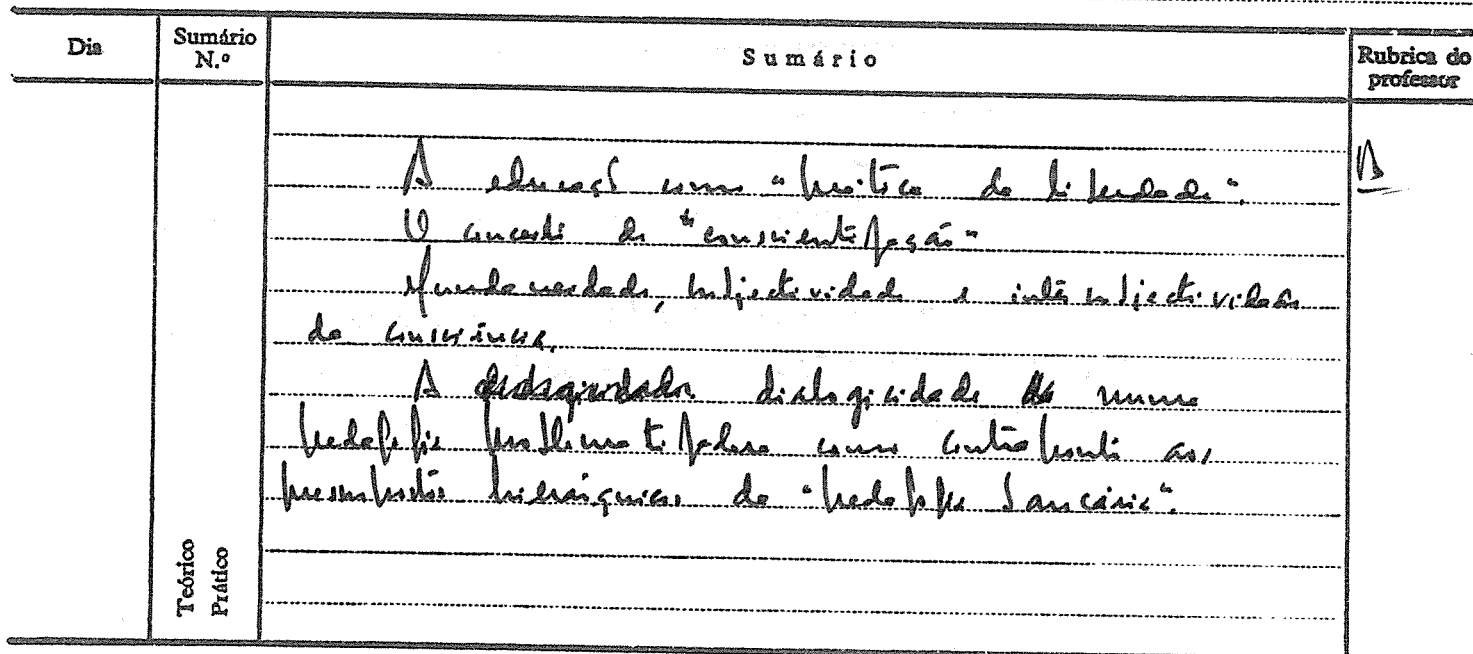 Dia
Sumário N.º
Sumário
Rubrica do professor
A educação como "prática da liberdade".
O conceito de "conscientização"
Mundaneidade, subjectividade e intersubjectividade
da consciência.
A dialogicidade numa
pedagogia problematizadora como contraponto aos
pressupostos hierárquicos da "pedagogia bancária".
Teórico
Prático